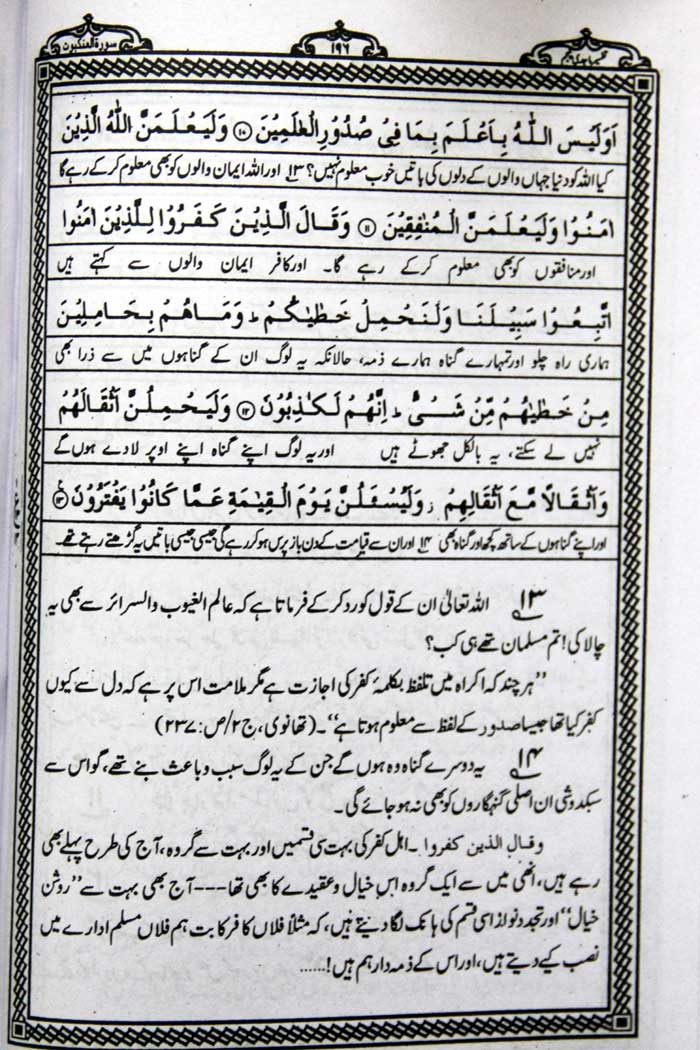 سورة العنکبوت
۱۹۶
اَوَلَیْسَ اللّٰهُ بِاَعْلَمَ بِمَا فِیْ صُدُوْرِ الْعٰلَمِیْنَ ۱۰ وَلَیَعْلَمَنَّ اللّٰهُ الَّذِیْنَ
کیا اللہ کو دنیا جہاں والوں کے دلوں کی باتیں خوب معلوم نہیں؟ ۱۳ اور اللہ ایمان والوں کو بھی معلوم کرکے رہے گا
اٰمَنُوْا وَلَیَعْلَمَنَّ الْمُنٰفِقِیْنَ ۱۱ وَقَالَ الَّذِیْنَ کَفَرُوْا لِلَّذِیْنَ اٰمَنُوا
اور منافقوں کو بھی معلوم کرکے رہے گا۔ اور کافر ایمان والوں سے کہتے ہیں
اتَّبِعُوْا سَبِیْلَنَا وَلْنَحْمِلْ خَطٰیٰکُمْ ؕ وَمَاهُمْ بِحَامِلِیْنَ
ہماری راہ چلو اور تمہارے گناہ ہمارے ذمہ، حالانکہ یہ لوگ ان کے گناہوں میں سے ذرا بھی
مِنْ خَطٰیٰهُمْ مِّنْ شَیْءٍ ؕ اِنَّهُمْ لَکٰذِبُوْنَ ۱۲ وَلَیَحْمِلُنَّ اَثْقَالَهُمْ
نہیں لے سکتے، یہ بالکل جھوٹے ہیں اور یہ لوگ اپنے گناہ اپنے اوپر لادے ہوں گے
وَاَثْقَالًا مَّعَ اَثْقَالِهِمْ ز وَلَیُسْئَلُنَّ یَوْمَ الْقِیٰمَةِ عَمَّا کَانُوْا یَفْتَرُوْنَ ۱۳
اور اپنے گناہوں کے ساتھ کچھ اور گناہ بھی ۱۴ اور ان سے قیامت کے دن باز پرس ہو کر رہے گی جیسی جیسی باتیں یہ گڑھتے رہتے تھے۔
۱۳ اللہ تعالیٰ ان کے قول کو رد کر کے فرماتا ہے کہ عالم الغیوب والسرائر سے بھی یہ
چالاکی! تم مسلمان تھے ہی کب؟
”ہر چند کہ اکراہ میں تلفظ بکلمۂ کفر کی اجازت ہے مگر ملامت اس پر ہے کہ دل سے کیوں
کفر کیا تھا جیسا صدور کے لفظ سے معلوم ہوتا ہے“۔ (تھانوی، ج۲/ص:۲۳۷)
۱۴ یہ دوسرے گناہ وہ ہوں گے جن کے یہ لوگ سبب و باعث بنے تھے، گو اس سے
سبکدوشی ان اصلی گنہگاروں کو بھی نہ ہو جائے گی۔
وقال الذین کفروا ۔ اہل کفر کی بہت سی قسمیں اور بہت سے گروہ، آج کی طرح پہلے بھی
رہے ہیں، انھی میں سے ایک گروہ اس خیال و عقیدے کا بھی تھا---آج بھی بہت سے ”روشن
خیال“ اور تجدد نواز اسی قسم کی ہانک لگا دیتے ہیں، کہ مثلاً فلاں کافر کا بت ہم فلاں مسلم ادارے میں
نصب کیے دیتے ہیں، اور اس کے ذمہ دار ہم ہیں!......